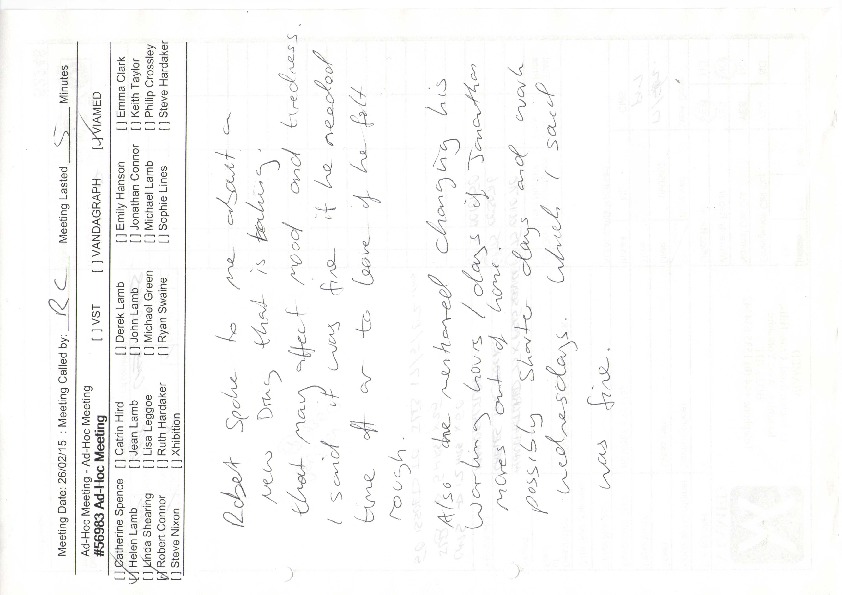 Meeting Date: 26/02/15 : Meeting Called by: RC Meeting Lasted 5 Minutes
Ad-Hoc Meeting - Ad-Hoc Meeting
#56983 Ad-Hoc Meeting [ ] VST [ ] VANDAGRAPH [✓] VIAMED
[ ] Catherine Spence [ ] Catrin Hird [ ] Derek Lamb [ ] Emily Hanson [ ] Emma Clark
[✓] Helen Lamb [ ] Jean Lamb [ ] John Lamb [ ] Jonathan Connor [ ] Keith Taylor
[ ] Linda Shearing [ ] Lisa Leggoe [ ] Michael Green [ ] Michael Lamb [ ] Philip Crossley
[✓] Robert Connor [ ] Ruth Hardaker [ ] Ryan Swaine [ ] Sophie Lines [ ] Steve Hardaker
[ ] Steve Nixon [ ] Xhibition
Robert Spoke to me about a
new Drug that is taking.
that may affect mood and tiredness.
I said it was fine if he needed
time off or to leave if he felt
rough.
Also he mentioned changing his
working hours / days if Jonathan
moves out of home.
possibly shorter days and work
wednesdays. Which I said
was fine.